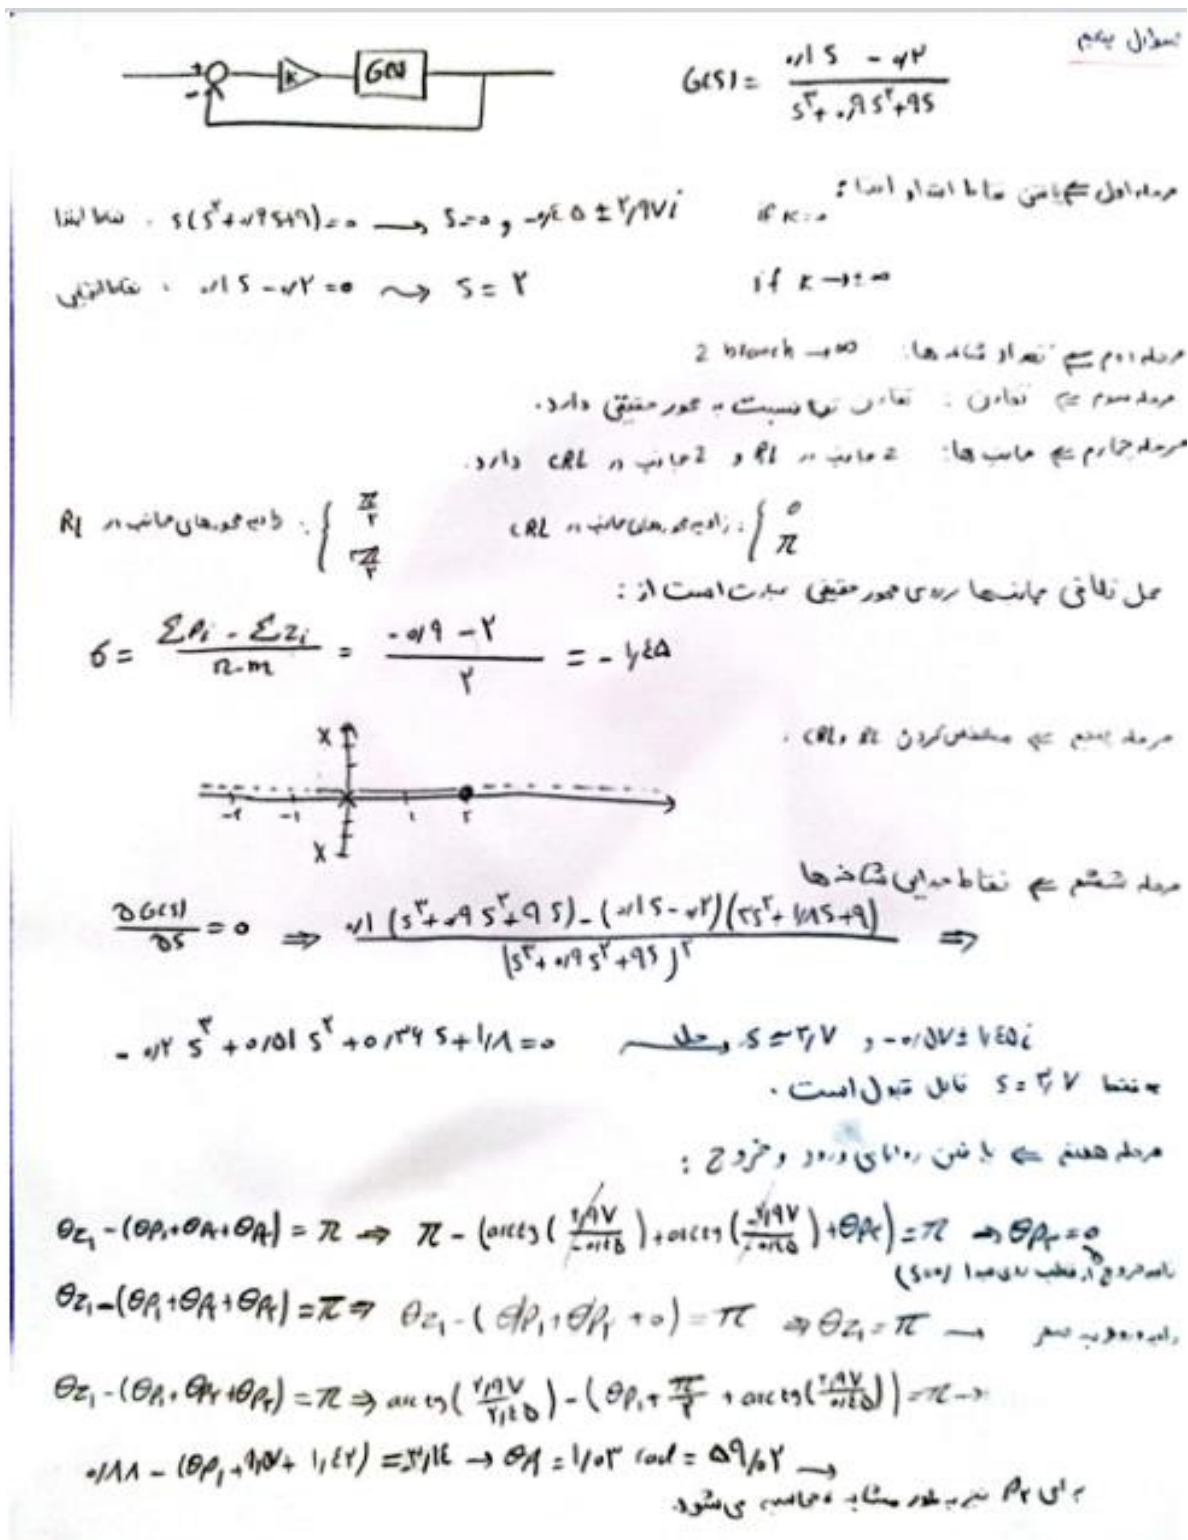 سوال پنجم
K G(s)
G(s) = ۰/۱ s - ۰/۲ / s^۳ + ۰/۹ s^۲ + ۹s
مرحله اول ⇐ یافتن نقاط ابتدا و انتها:
if K=0 نقاط ابتدا : s(s^۲ + ۰/۹s + ۹) = ۰ → s=۰ و -۰/٤۵ ± ۲/۹۷i
if K → ±∞ : ۰/۱s - ۰/۲ = ۰ ⇝ s = ۲
مرحله دوم ⇐ تعداد شاخه ها: 2 branch → ∞
مرحله سوم ⇐ تقارن : تقارن تنها نسبت به محور حقیقی دارد.
مرحله چهارم ⇐ مجانب ها: 2 مجانب در RL و 2 مجانب در CRL دارد.
زاویه محورهای مجانب در RL : { π/۲ ۳π/۲ زاویه محورهای مجانب در CRL : { ۰ π
محل تلاقی مجانبها روی محور حقیقی عبارت است از :
σ = Σpi - Σzi / n-m = -۰/۹ - ۲ / ۲ = -۱/٤۵
مرحله پنجم ⇐ مشخص کردن RL و CRL .
-۲ -۱ ۱ ۲
مرحله ششم ⇐ نقاط جدایی شاخه ها
∂G(s)/∂s = ۰ ⇒ ۰/۱(s^۳ + ۰/۹s^۲ + ۹s) - (۰/۱s - ۰/۲)(۳s^۲ + ۱/۸s + ۹) / (s^۳ + ۰/۹s^۲ + ۹s)^۲ ⇒
-۰/۲s^۳ + ۰/۵۱s^۲ + ۰/۳۶s + ۱/۸ = ۰ حل s = ۳/۷ و -۰/۵۷ ± ۱/٤۵i
فقط s = ۳/۷ قابل قبول است .
مرحله هفتم ⇐ یافتن زوایای ورود و خروج :
θz₁ - (θp₁ + θp₂ + θp₃) = π ⇒ π - (arctg(۲/۹۷/-۰/٤۵) + arctg(-۲/۹۷/-۰/٤۵) + θp₃) = π ⇒ θp₃ = ۰
زاویه خروج از قطب مبدا (s=۰)
θz₁ - (θp₁ + θp₂ + θp₃) = π ⇒ θz₁ - (θp₁ + θp₂ + ۰) = π ⇒ θz₁ = π → زاویه ورود به صفر
θz₁ - (θp₁ + θp₂ + θp₃) = π ⇒ arctg(۲/۹۷/۲/٤۵) - (θp₁ + π/۲ + arctg(۲/۹۷/۰/٤۵)) = π →
۰/۸۸ - (θp₁ + ۱/۵۷ + ۱/٤۲) = ۳/۱٤ → θp₁ = ۱/۰۳ rad = ۵۹/۰۲ →
برای p₂ نیز به طور مشابه محاسبه می شود.